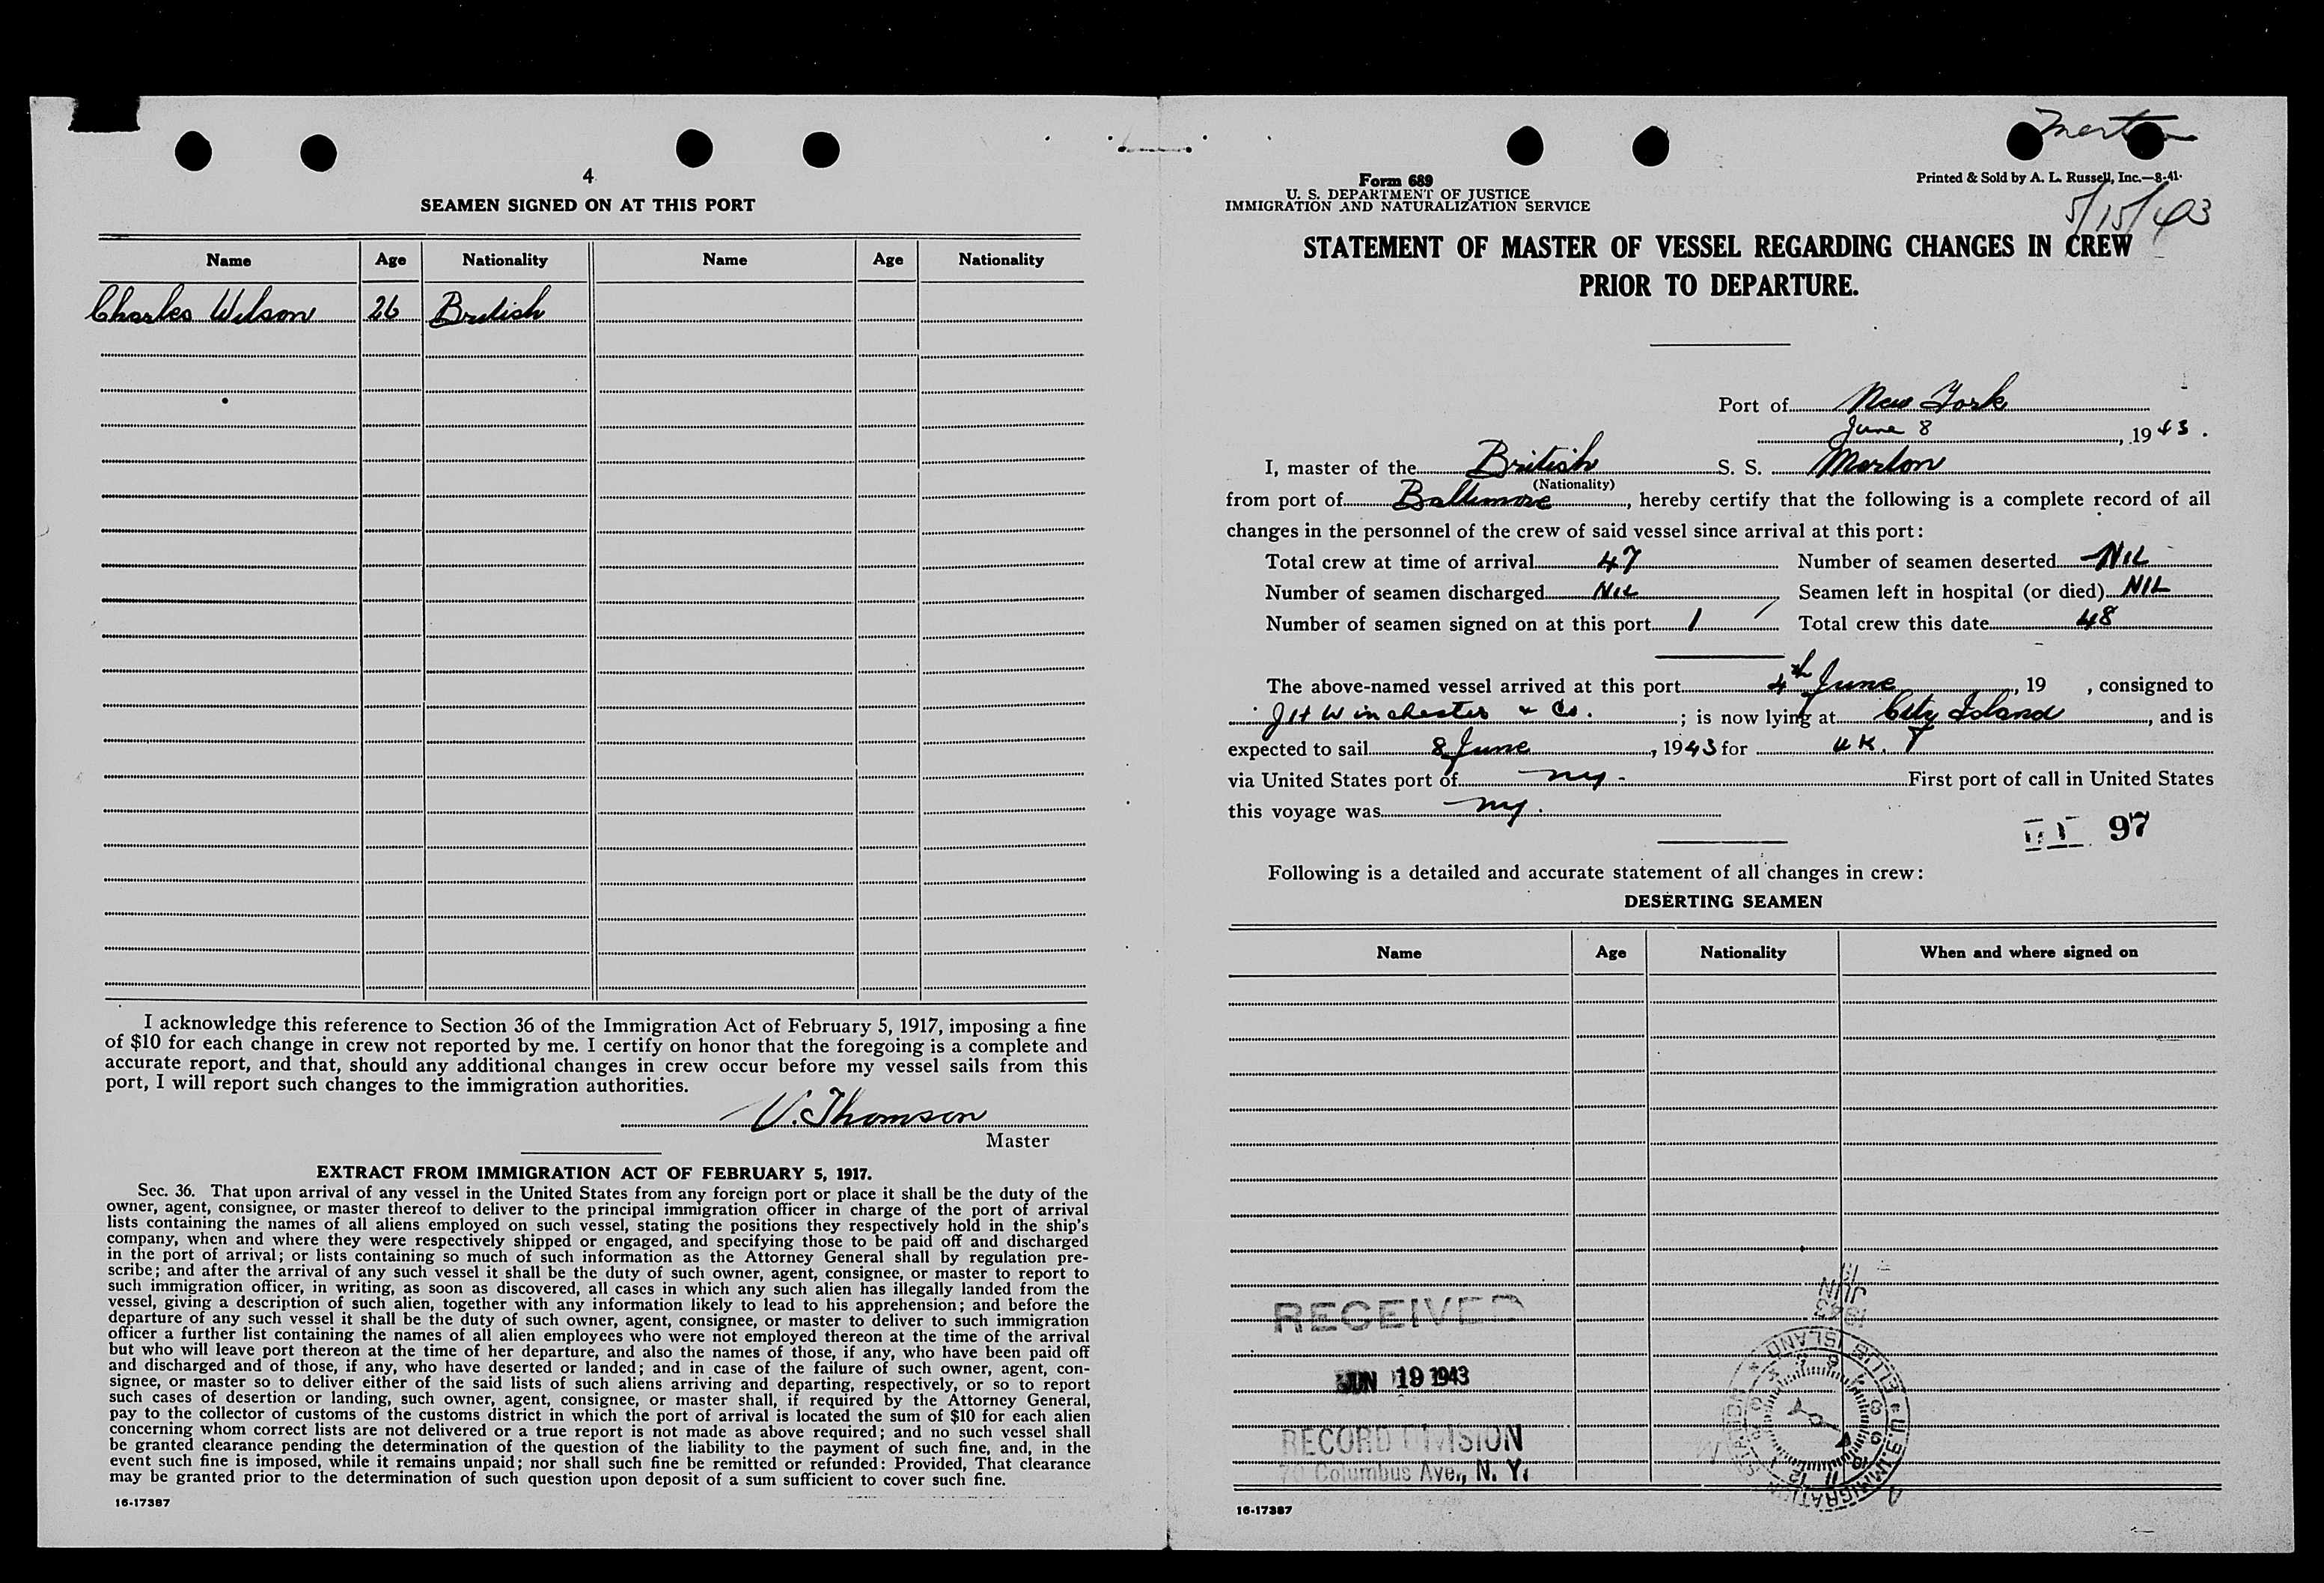 4
SEAMEN SIGNED ON AT THIS PORT
Name Age Nationality Name Age Nationality
Charles Wilson 26 British
I acknowledge this reference to Section 36 of the Immigration Act of February 5, 1917, imposing a fine
of $10 for each change in crew not reported by me. I certify on honor that the foregoing is a complete and
accurate report, and that, should any additional changes in crew occur before my vessel sails from this
port, I will report such changes to the immigration authorities.
V. Thomson
Master
EXTRACT FROM IMMIGRATION ACT OF FEBRUARY 5, 1917.
Sec. 36. That upon arrival of any vessel in the United States from any foreign port or place it shall be the duty of the
owner, agent, consignee, or master thereof to deliver to the principal immigration officer in charge of the port of arrival
lists containing the names of all aliens employed on such vessel, stating the positions they respectively hold in the ship's
company, when and where they were respectively shipped or engaged, and specifying those to be paid off and discharged
in the port of arrival; or lists containing so much of such information as the Attorney General shall by regulation pre-
scribe; and after the arrival of any such vessel it shall be the duty of such owner, agent, consignee, or master to report to
such immigration officer, in writing, as soon as discovered, all cases in which any such alien has illegally landed from the
vessel, giving a description of such alien, together with any information likely to lead to his apprehension; and before the
departure of any such vessel it shall be the duty of such owner, agent, consignee, or master to deliver to such immigration
officer a further list containing the names of all alien employees who were not employed thereon at the time of the arrival
but who will leave port thereon at the time of her departure, and also the names of those, if any, who have been paid off
and discharged and of those, if any, who have deserted or landed; and in case of the failure of such owner, agent, con-
signee, or master so to deliver either of the said lists of such aliens arriving and departing, respectively, or so to report
such cases of desertion or landing, such owner, agent, consignee, or master shall, if required by the Attorney General,
pay to the collector of customs of the customs district in which the port of arrival is located the sum of $10 for each alien
concerning whom correct lists are not delivered or a true report is not made as above required; and no such vessel shall
be granted clearance pending the determination of the question of the liability to the payment of such fine, and, in the
event such fine is imposed, while it remains unpaid; nor shall such fine be remitted or refunded: Provided, That clearance
may be granted prior to the determination of such question upon deposit of a sum sufficient to cover such fine.
16-17387
Form 689
U. S. DEPARTMENT OF JUSTICE
IMMIGRATION AND NATURALIZATION SERVICE
Printed & Sold by A. L. Russell, Inc.—8-41.
5/15/43
STATEMENT OF MASTER OF VESSEL REGARDING CHANGES IN CREW
PRIOR TO DEPARTURE.
Port of New York
June 8, 1943.
I, master of the British S. S. Merton
(Nationality)
from port of Baltimore, hereby certify that the following is a complete record of all
changes in the personnel of the crew of said vessel since arrival at this port:
Total crew at time of arrival 47 Number of seamen deserted NIL
Number of seamen discharged NIL Seamen left in hospital (or died) NIL
Number of seamen signed on at this port 1 Total crew this date 48
The above-named vessel arrived at this port 4th June, 19 , consigned to
J H Winchester & Co. ; is now lying at City Island, and is
expected to sail 8 June, 1943 for U.K.
via United States port of NY. First port of call in United States
this voyage was NY.
97
Following is a detailed and accurate statement of all changes in crew:
DESERTING SEAMEN
Name Age Nationality When and where signed on
RECEIVED
JUN 19 1943
RECORD DIVISION
70 Columbus Ave., N. Y.
1943
JUN
ELLIS ISLAND
16-17387